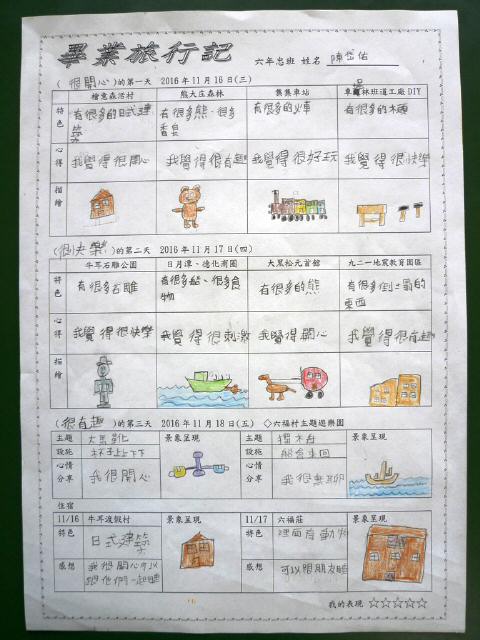 畢業旅行記 六年忠班 姓名 陳岱佑
(很開心)的第一天 2016年11月16日(三)
檜意森活村 熊大庄森林 集集車站 車埕林班道工廠DIY
特色 有很多的日式建築 有很多熊、很多香皂 有很多的火車 有很多的木頭
心得 我覺得很開心 我覺得很有趣 我覺得很好玩 我覺得很快樂
描繪
(很快樂)的第二天 2016年11月17日(四)
牛耳石雕公園 日月潭、德化商圈 大黑松元首館 九二一地震教育園區
特色 有很多石雕 有很多船、很多食物 有很多的熊 有很多倒塌的東西
心得 我覺得很快樂 我覺得很刺激 我覺得開心 我覺得很有趣
描繪
(很有趣)的第三天 2016年11月18日(五) ◇六福村主題遊樂園
主題 景象呈現 主題 獨木舟 景象呈現
設施 杯子上上下下 設施 船會來回
心情分享 我很開心 心情分享 我很無聊
住宿
11/16 牛耳渡假村 景象呈現 11/17 六福莊 景象呈現
特色 日式建築 特色 裡面有動物
感想 我很開心可以跟他們一起睡 感想 可以跟朋友睡
我的表現 ☆☆☆☆☆